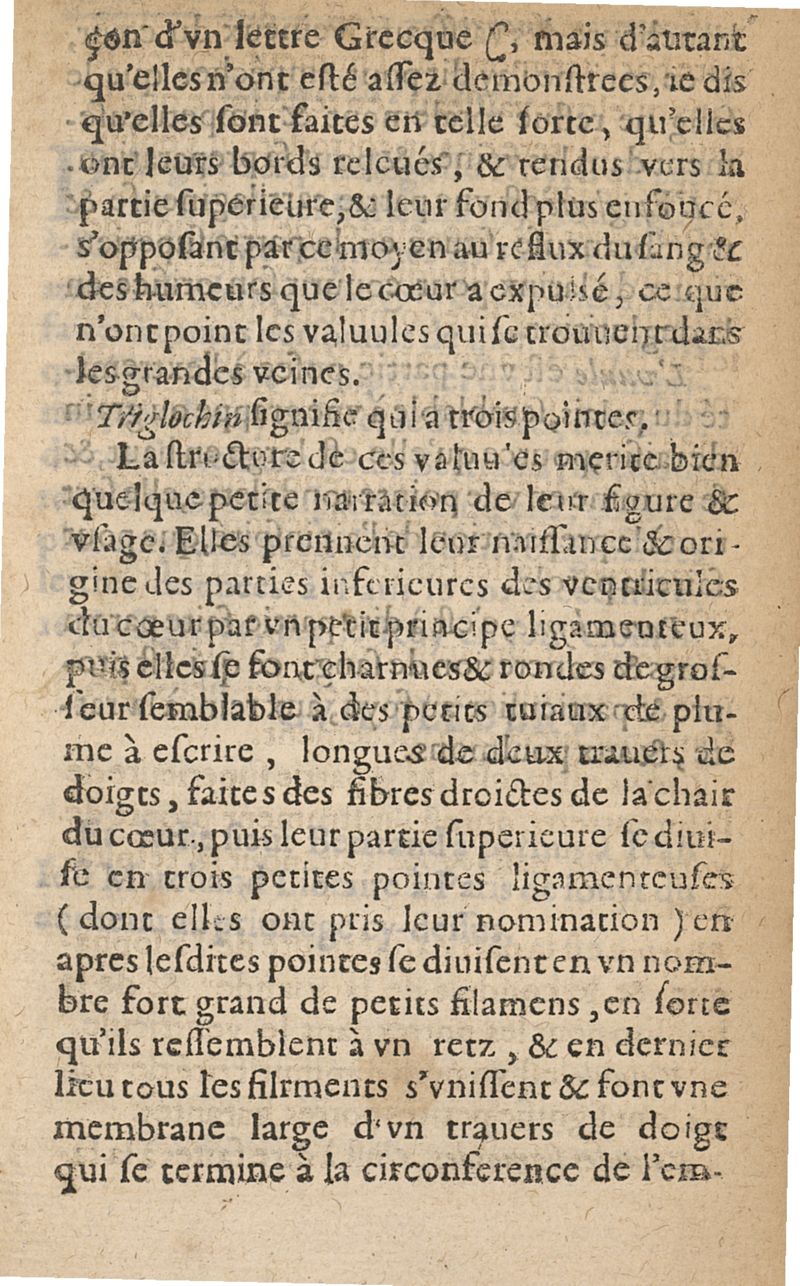 çon d'vn lettre Grecque ς, mais d'autant
qu'elles n'ont esté assez demonstrees, ie dis
qu'elles sont faites en telle sorte, qu'elles
ont leurs bords releués, & tendus vers la
partie superieure, & leur fond plus enfoncé,
s'opposant par ce moyen au reflux du sang &
des humeurs que le cœur a expulsé, ce que
n'ont point les valuules qui se trouuent dans
les grandes veines.
Triglochin signifie qui a trois pointes.
La structure de ces valuu'es merite bien
quelque petite narration de leur figure &
vsage. Elles prennent leur naissance & ori-
gine des parties inferieures des ventricules
du cœur par vn petit principe ligamenteux,
puis elles se font charnues & rondes de gros-
seur semblable à des petits tuiaux de plu-
me à escrire, longues de deux trauers de
doigts, faites des fibres droictes de la chair
du cœur, puis leur partie superieure se diui-
se en trois petites pointes ligamenteuses
(dont elles ont pris leur nomination) en
apres lesdites pointes se diuisent en vn nom-
bre fort grand de petits filamens, en sorte
qu'ils ressemblent à vn retz, & en dernier
lieu tous les filrments s'vnissent & font vne
membrane large d'vn trauers de doigt
qui se termine à la circonference de l'em-